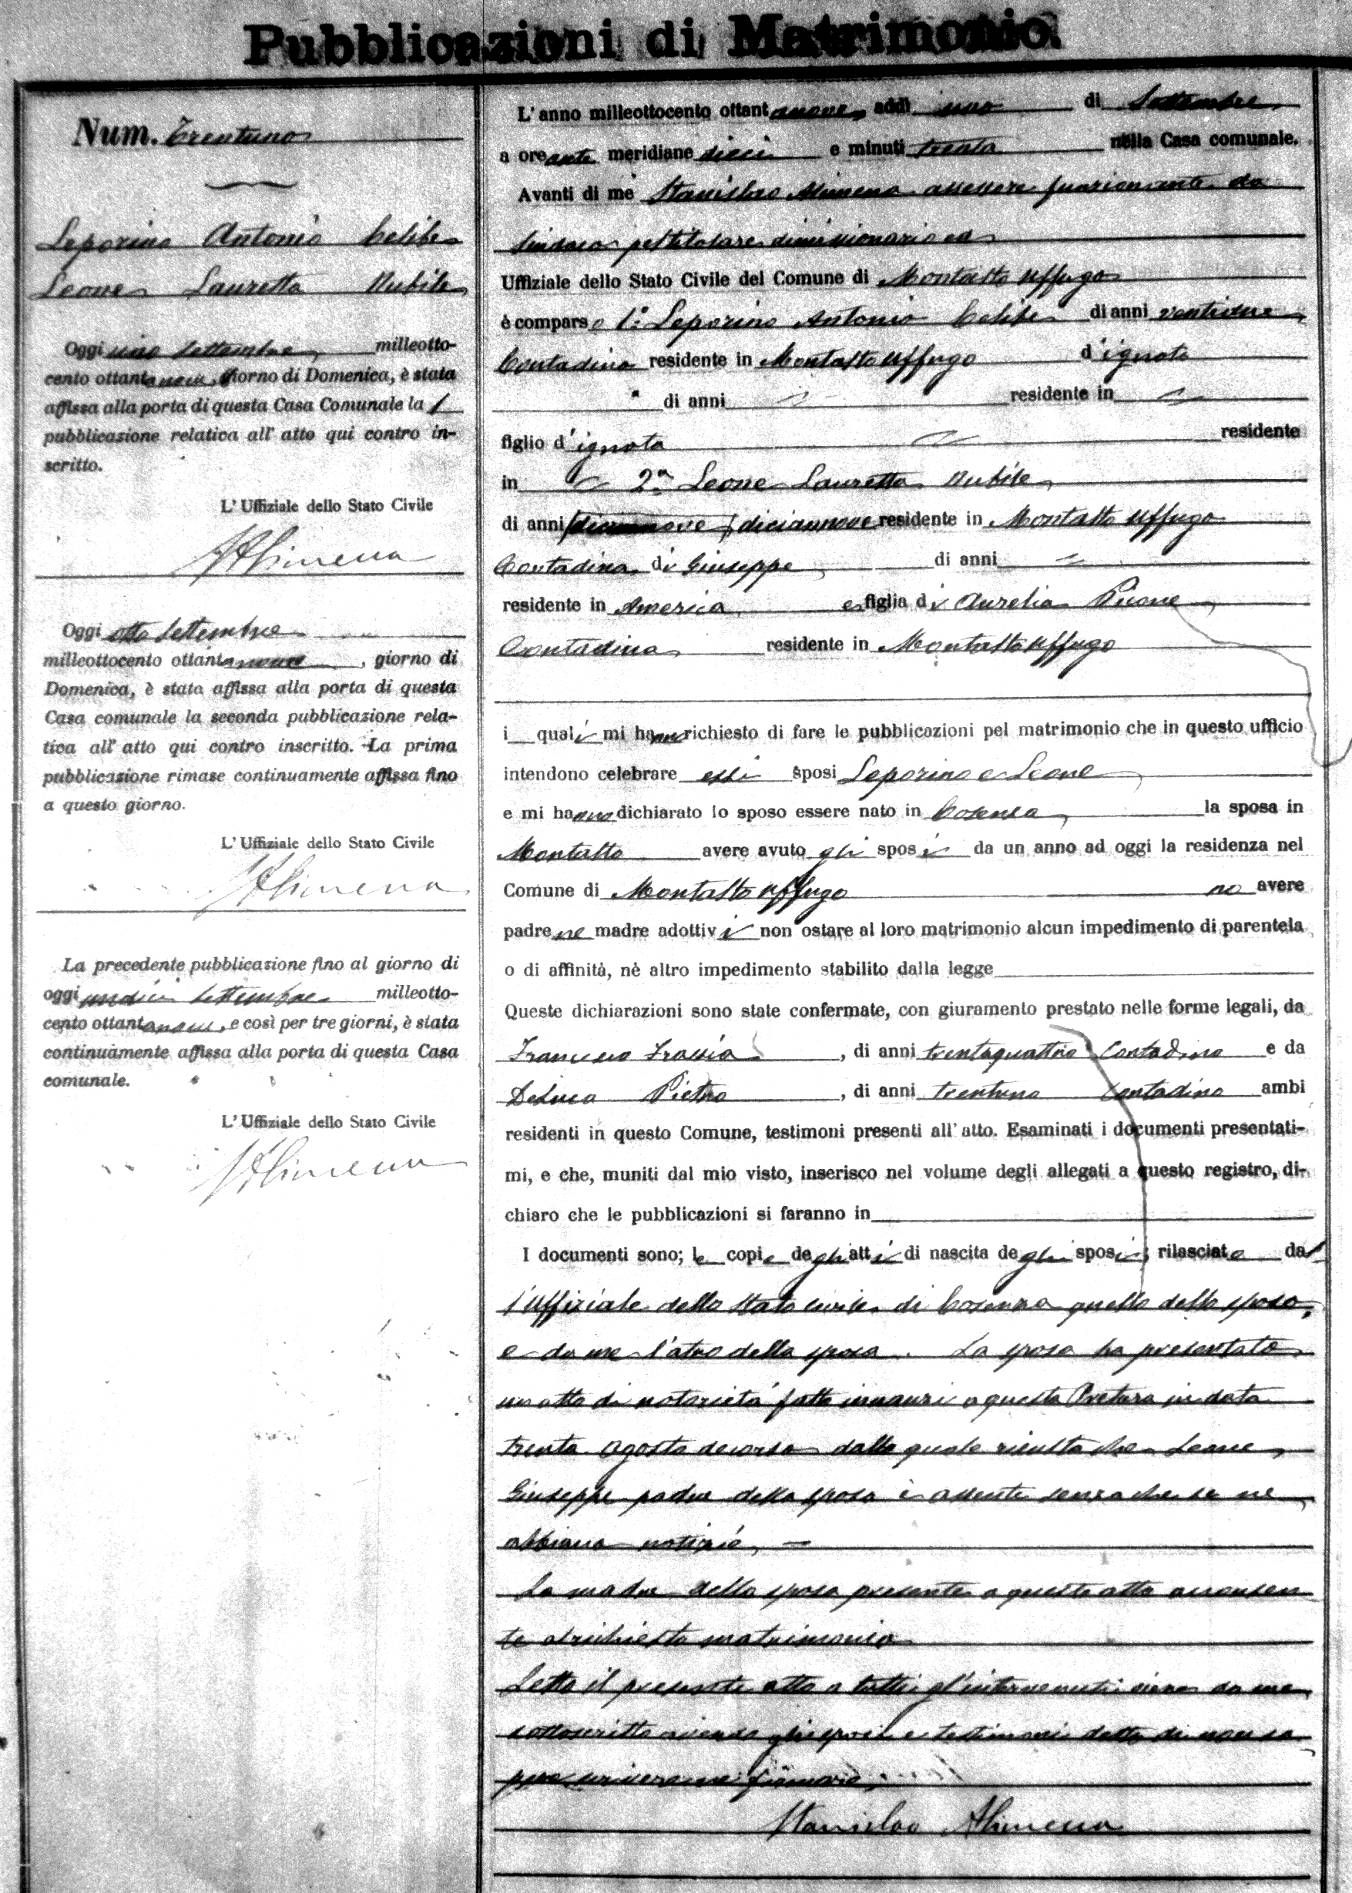 Pubblicazioni di Matrimonio.
Num. Trentuno
Leporino Antonio Celibe
Leone Lauretta Nubile
Oggi uno settembre milleotto-
cento ottantanove, giorno di Domenica, è stata
affissa alla porta di questa Casa Comunale la 1
pubblicazione relativa all' atto qui contro in-
scritto.
L' Uffiziale dello Stato Civile
SAlimena
Oggi otto Settembre
milleottocento ottantanove, giorno di
Domenica, è stata affissa alla porta di questa
Casa comunale la seconda pubblicazione rela-
tiva all' atto qui contro inscritto. La prima
pubblicazione rimase continuamente affissa fino
a questo giorno.
L' Uffiziale dello Stato Civile
SAlimena
La precedente pubblicazione fino al giorno di
oggi undici Settembre milleotto-
cento ottantanove, e così per tre giorni, è stata
continuamente affissa alla porta di questa Casa
comunale.
L' Uffiziale dello Stato Civile
SAlimena
L' anno milleottocento ottantanove, addì uno di Settembre
a ore ante meridiane dieci e minuti trenta nella Casa comunale.
Avanti di me Stanislao Alimena assessore funzionante da
Sindaco pel titolare dimissionario ed
Uffiziale dello Stato Civile del Comune di Montalto Uffugo
è comparso 1.º Leporino Antonio Celibe di anni ventidue
Contadino residente in Montalto Uffugo d'ignoto
di anni residente in
figlio d'ignota residente
in 2.ª Leone Lauretta Nubile
di anni diciannove diciannove residente in Montalto Uffugo
Contadina di Giuseppe di anni
residente in America e figlia di Aurelia Pirone
Contadina residente in Montalto Uffugo
i quali mi hanno richiesto di fare le pubblicazioni pel matrimonio che in questo ufficio
intendono celebrare essi sposi Leporino e Leone
e mi hanno dichiarato lo sposo essere nato in Cosenza la sposa in
Montalto avere avuto gli sposi da un anno ad oggi la residenza nel
Comune di Montalto Uffugo no avere
padre ne madre adottivi non ostare al loro matrimonio alcun impedimento di parentela
o di affinità, nè altro impedimento stabilito dalla legge
Queste dichiarazioni sono state confermate, con giuramento prestato nelle forme legali, da
Francesco Frassia, di anni trentaquattro Contadino e da
Deluca Pietro, di anni trentuno Contadino ambi
residenti in questo Comune, testimoni presenti all' atto. Esaminati i documenti presentati-
mi, e che, muniti dal mio visto, inserisco nel volume degli allegati a questo registro, di-
chiaro che le pubblicazioni si faranno in
I documenti sono; le copie degli atti di nascita degli sposi; rilasciate dal
l'Uffiziale dello Stato civile di Cosenza quello dello sposo,
e da me l'atro della sposa. La sposa ha presentato
un atto di notorietà fatto innanzi a questa Pretura in data
trenta Agosto decorso dalla quale risulta che Leone
Giuseppe padre della sposa è assente senza che se ne
abbiano notizie,
La madre della sposa presente a questo atto acconsen
te al richiesto matrimonio
Letto il presente atto a tutti gl'intervenuti viene da me
sottoscritto avendo gli sposi e testimoni detto di non sa
pere scrivere ne firmare.
Stanislao Alimena